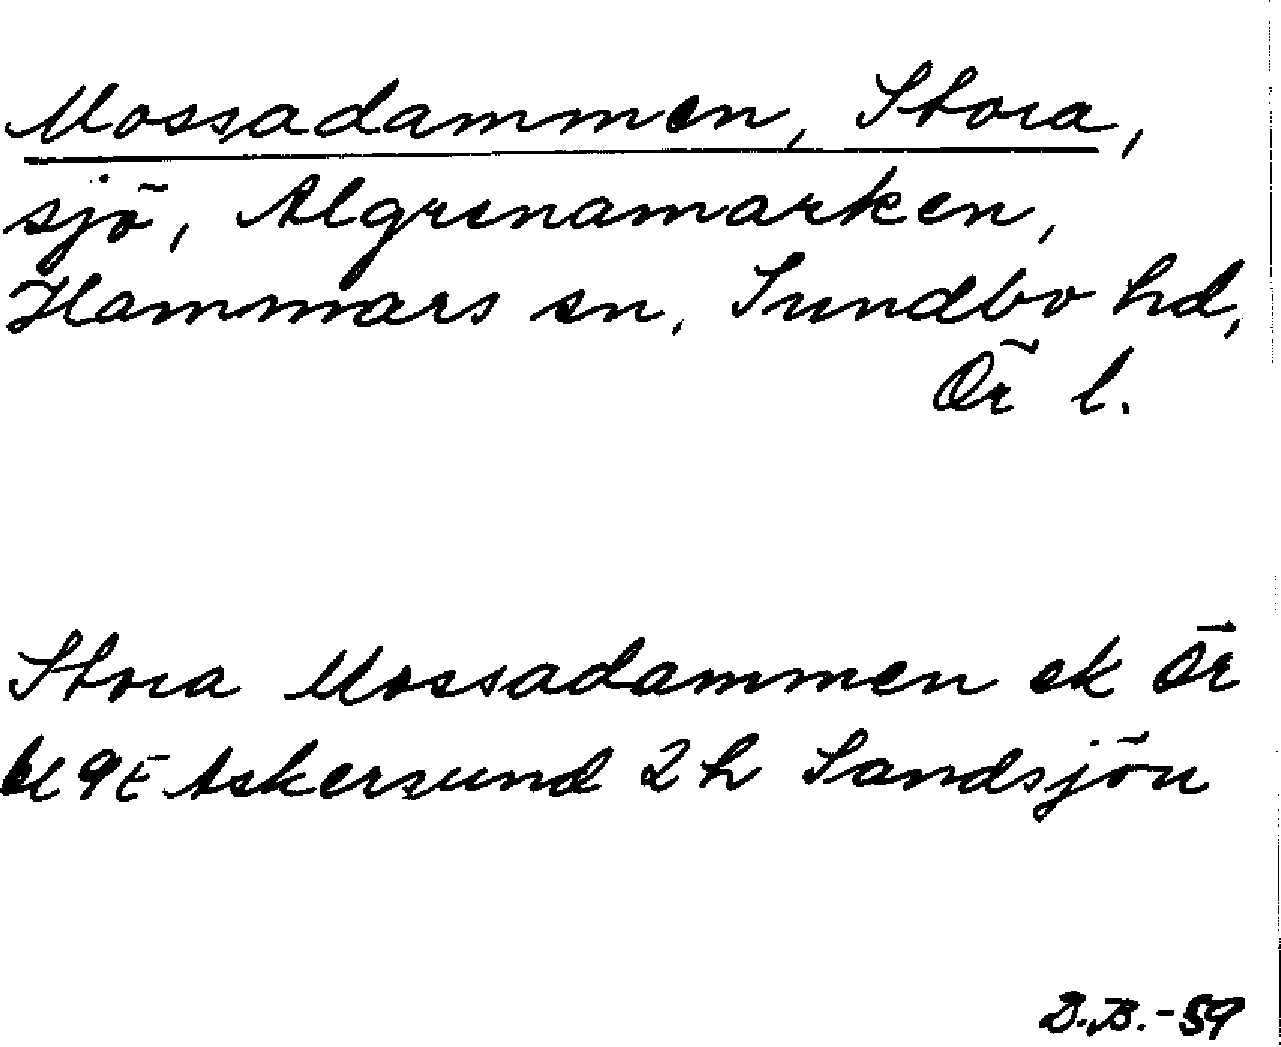 Mossadammen, Stora,
sjö, Algrenamarken,
Hammars sn, Sundbo hd,
Ör l.
Stora Mossadammen ek Ör
9E Askersund 2h Sandsjön
D.B.-59